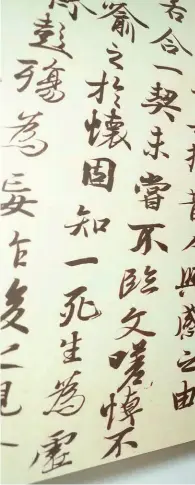 昔人興感之由
合一契未嘗不臨文嗟悼不
喻之於懷固知一死生為虛
彭殤為妄作後之視